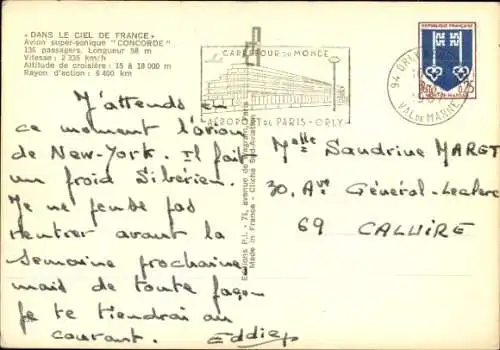 « DANS LE CIEL DE FRANCE »
Avion super-sonique "CONCORDE"
136 passagers. Longueur 58 m
Vitesse : 2 335 km/h
Altitude de croisière : 15 à 18 000 m
Rayon d'action : 6 400 km
CARREFOUR DU MONDE
AÉROPORT DE PARIS-ORLY
94 ORLY
VAL DE MARNE
REPUBLIQUE FRANÇAISE
0,25
MONT-DE-MARSAN
J'attends en
ce moment l'avion
de New-York. Il fait
un froid Sibérien.
Je ne pense pas
rentrer avant la
semaine prochaine
mais de toute façon
je te tiendrai au
courant. Eddie
Editions P.I. - 71, avenue de Wagram, Paris
Made in France - Cliché Sud-Aviation
Melle Sandrine MARET
30, Ave Général-Leclerc
69 CALUIRE